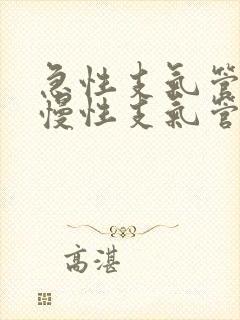 急性支氣管
慢性支氣管
高湛